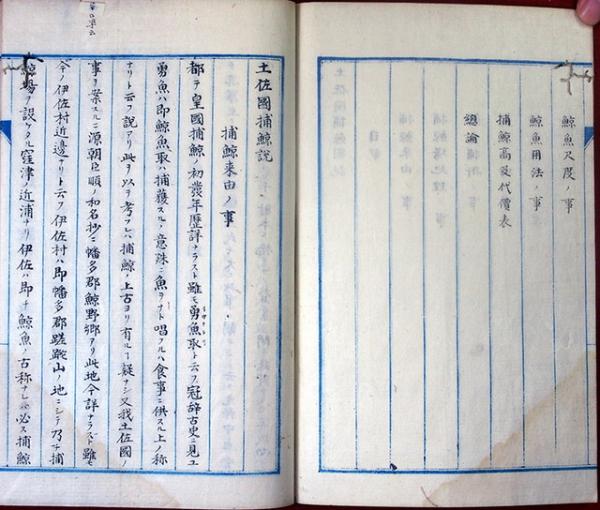 鯨魚尺度ノ事
鯨魚用法ノ事
捕鯨高及代價表
總論
土佐國捕鯨説
捕鯨来由ノ事
都テ皇國捕鯨ノ初發年歴詳ナラスト雖モ勇魚取ト云フ冠辞古史ニ見ユ
勇魚ハ即鯨魚取ハ捕獲スルノ意殊ニ魚ヲナト唱フルハ食事ニ供スル上ノ称
ナリト云フ説アリ此ヲ以テ考フレハ捕鯨ノ上古ヨリ有ルヿ疑ナシ又我土佐國ノ
事ヲ案スルニ源朝臣順ノ和名抄ニ幡多郡鯨野郷アリ此地今詳ナラスト雖モ
今ノ伊佐村近邊ナリト云フ伊佐村ハ即幡多郡蹉跎山ノ地ニシテ乃チ捕
鯨場ヲ設ケタル窪津ノ近浦ナリ伊佐ハ即チ鯨魚ノ古称ナレハ必ス捕鯨